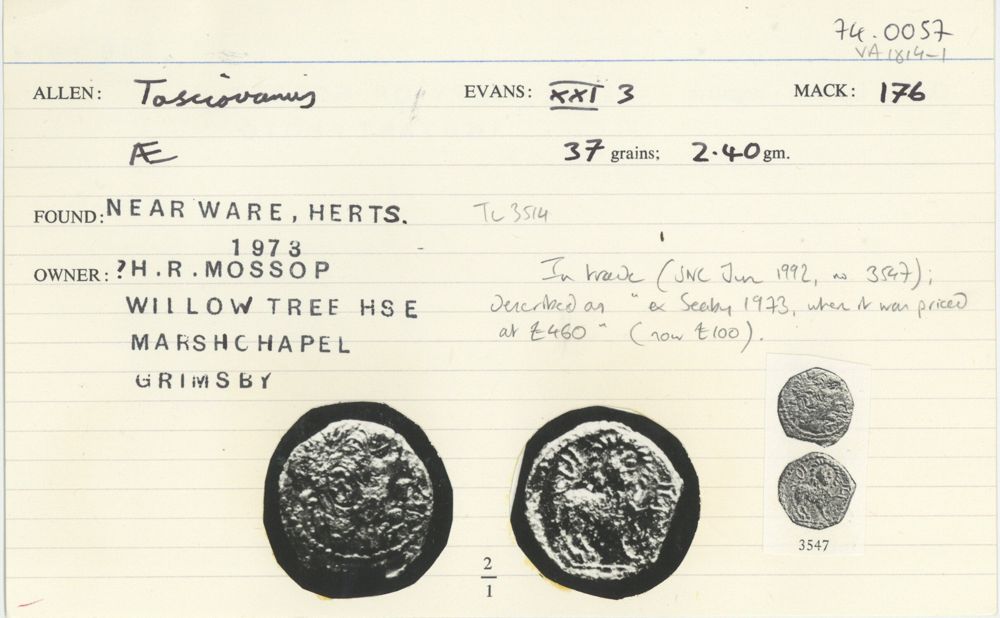 74.0057
VA 1814-1
ALLEN: Tasciovanus EVANS: XXI 3 MACK: 176
Æ 37 grains; 2.40 gm.
FOUND: NEAR WARE, HERTS. TL 3514
1973
OWNER: ?H.R.MOSSOP
WILLOW TREE HSE
MARSHCHAPEL
GRIMSBY
In trade (SNC Jun 1992, no 3547);
described as "ex Seaby 1973, when it was priced
at £460" (now £100).
3547
2
1